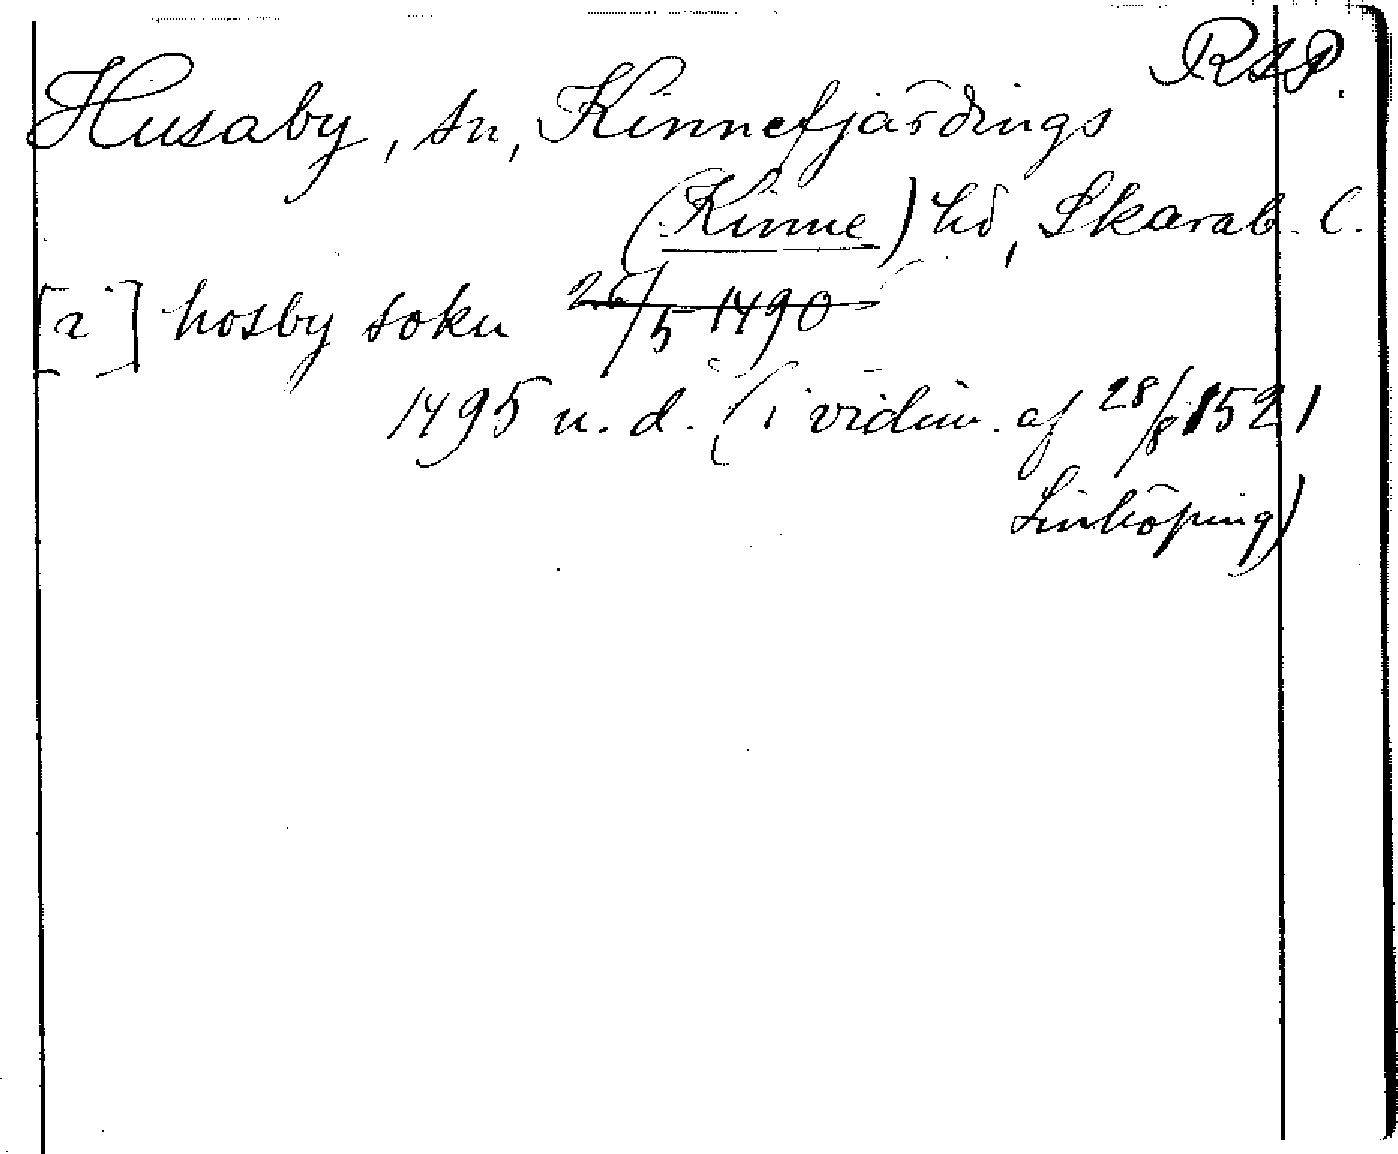 RAP.
Husaby, sn, Kinnefjärdings
(Kinne) hd, Skarab. l.
[i] hosby sokn 26/5 1490
1495 u. d. (i vidim. af 28/8 1521
Linköping)